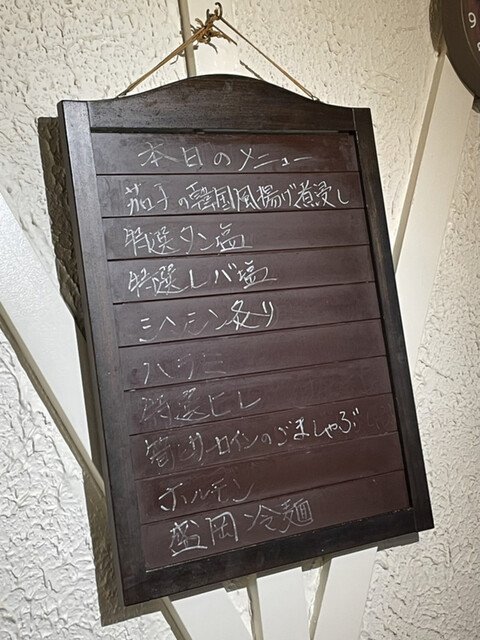 本日のメニュー
茄子の韓国風揚げ煮浸し
特選タン塩
特選レバ塩
シャトーブリアン炙り
ハラミ
特選ヒレ
サーロインのごましゃぶ
ホルモン
盛岡冷麺
9